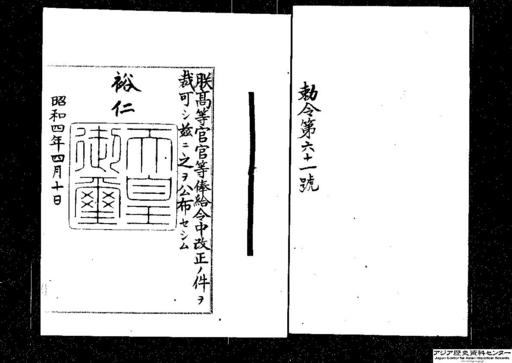 勅令第六十一號
朕高等官官等俸給令中改正ノ件ヲ
裁可シ茲ニ之ヲ公布セシム
裕仁
天皇
御璽
昭和四年四月十日
アジア歴史資料センター
Japan Center for Asian Historical Records